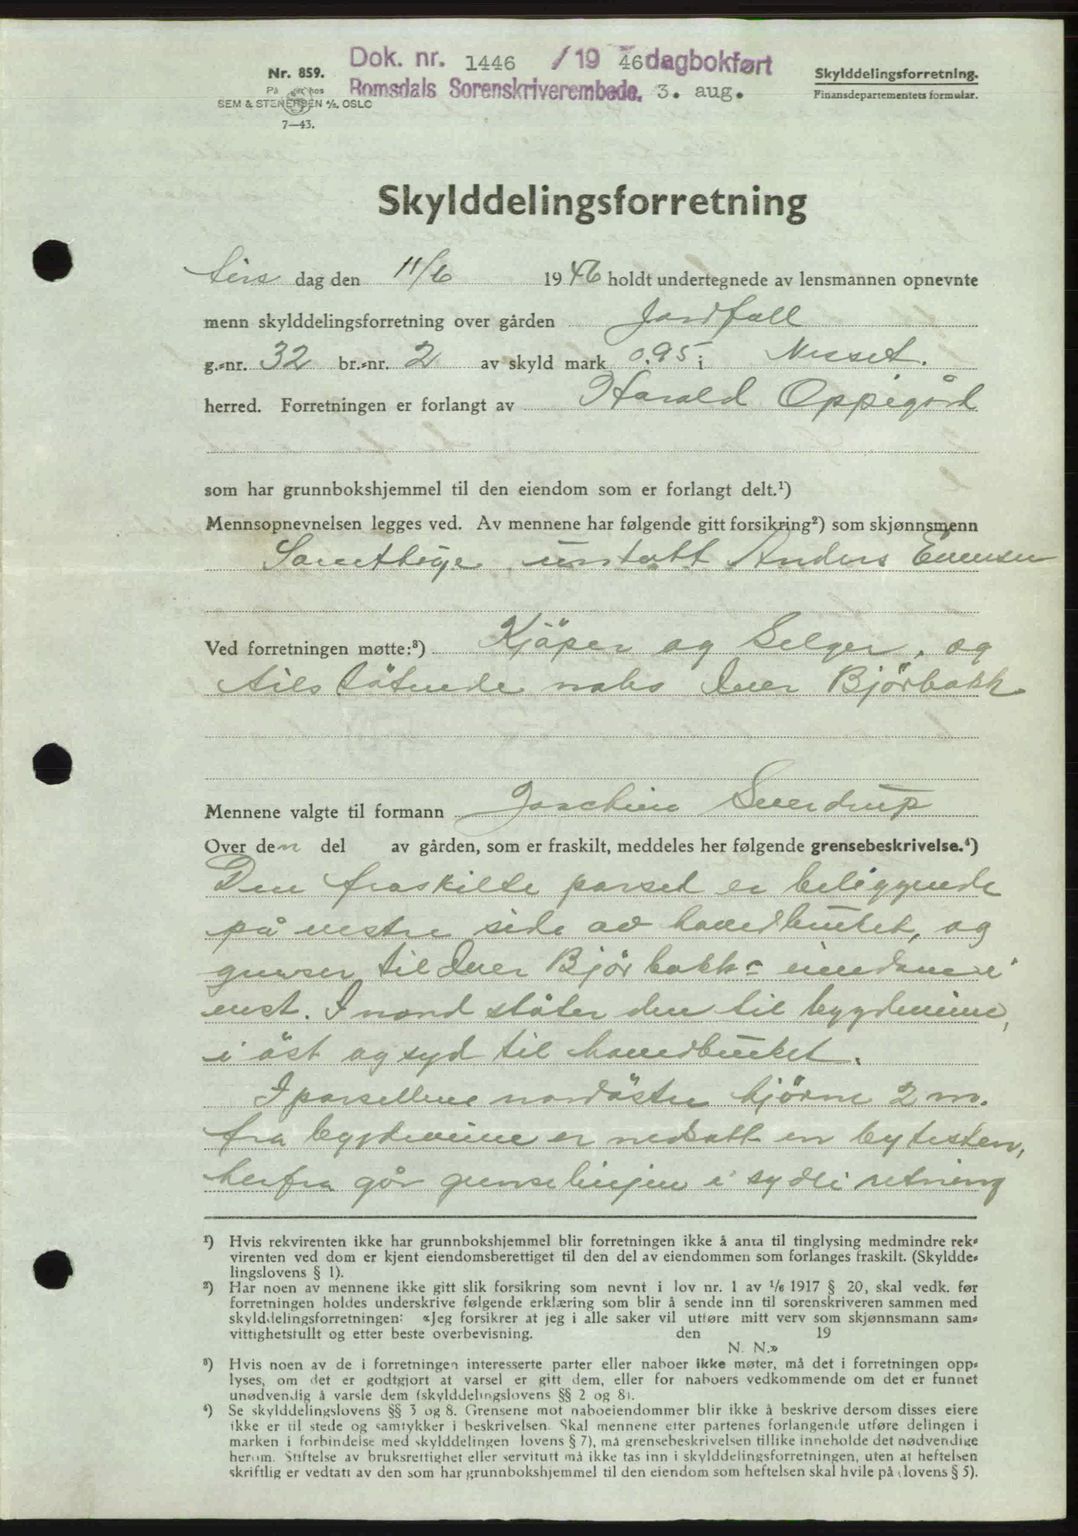 Nr. 859.
På
SEM & STENERSEN A/S, OSLO
7—43.
Dok. nr. 1446 /19 46 dagbokført
Romsdals Sorenskriverembede. 3. aug.
Skylddelingsforretning.
Finansdepartementets formular.
Skylddelingsforretning
tirs dag den 11/6 1946 holdt undertegnede av lensmannen opnevnte
menn skylddelingsforretning over gården Jordfall
g.-nr. 32 br.-nr. 2 av skyld mark 0,95 i Nesset.
herred. Forretningen er forlangt av Harald Oppigård
som har grunnbokshjemmel til den eiendom som er forlangt delt.¹)
Mennsopnevnelsen legges ved. Av mennene har følgende gitt forsikring²) som skjønnsmenn
Samtlige untatt Anders Evensen
Ved forretningen møtte:³) Kjöper og Selger, og
tilstötende nabo Iver Bjørbakk
Mennene valgte til formann Joachim Sverdrup
Over den del av gården, som er fraskilt, meddeles her følgende grensebeskrivelse.⁴)
Den fraskilte parsel er beliggende
på vestre side av hovedbruket, og
grenser til Iver Bjørbakk's eiendom i
vest. I nord støter den til bygdeveien,
i öst og syd til hovedbruket.
I parsellens nordöstre hjörne 2 m.
fra bygdeveien er nedsatt en bytesten,
herfra går grenselinjen i sydli retning
¹) Hvis rekvirenten ikke har grunnbokshjemmel blir forretningen ikke å anta til tinglysing medmindre rek-
virenten ved dom er kjent eiendomsberettiget til den del av eiendommen som forlanges fraskilt. (Skyldde-
lingslovens § 1).
²) Har noen av mennene ikke gitt slik forsikring som nevnt i lov nr. 1 av 1/6 1917 § 20, skal vedk. før
forretningen holdes underskrive følgende erklæring som blir å sende inn til sorenskriveren sammen med
skylddelingsforretningen: «Jeg forsikrer at jeg i alle saker vil utføre mitt verv som skjønnsmann sam-
vittighetsfullt og etter beste overbevisning. den 19
N. N.»
³) Hvis noen av de i forretningen interesserte parter eller naboer ikke møter, må det i forretningen opp-
lyses, om det er godtgjort at varsel er gitt dem, eller for naboers vedkommende om det er funnet
unødvendig å varsle dem (skylddelingslovens §§ 2 og 8).
⁴) Se skylddelingslovens §§ 3 og 8. Grensene mot naboeiendommer blir ikke å beskrive dersom disses eiere
ikke er til stede og samtykker i beskrivelsen. Skal mennene etter partenes forlangende utføre delingen i
marken i forbindelse med skylddelingen lovens § 7), må grensebeskrivelsen tillike inneholde det nødvendige
herom. Stiftelse av bruksrettighet eller servitutt må ikke tas inn i skylddelingsforretningen, uten at heftelsen
skriftlig er vedtatt av den som har grunnbokshjemmel til den eiendom som heftelsen skal hvile på (lovens § 5).